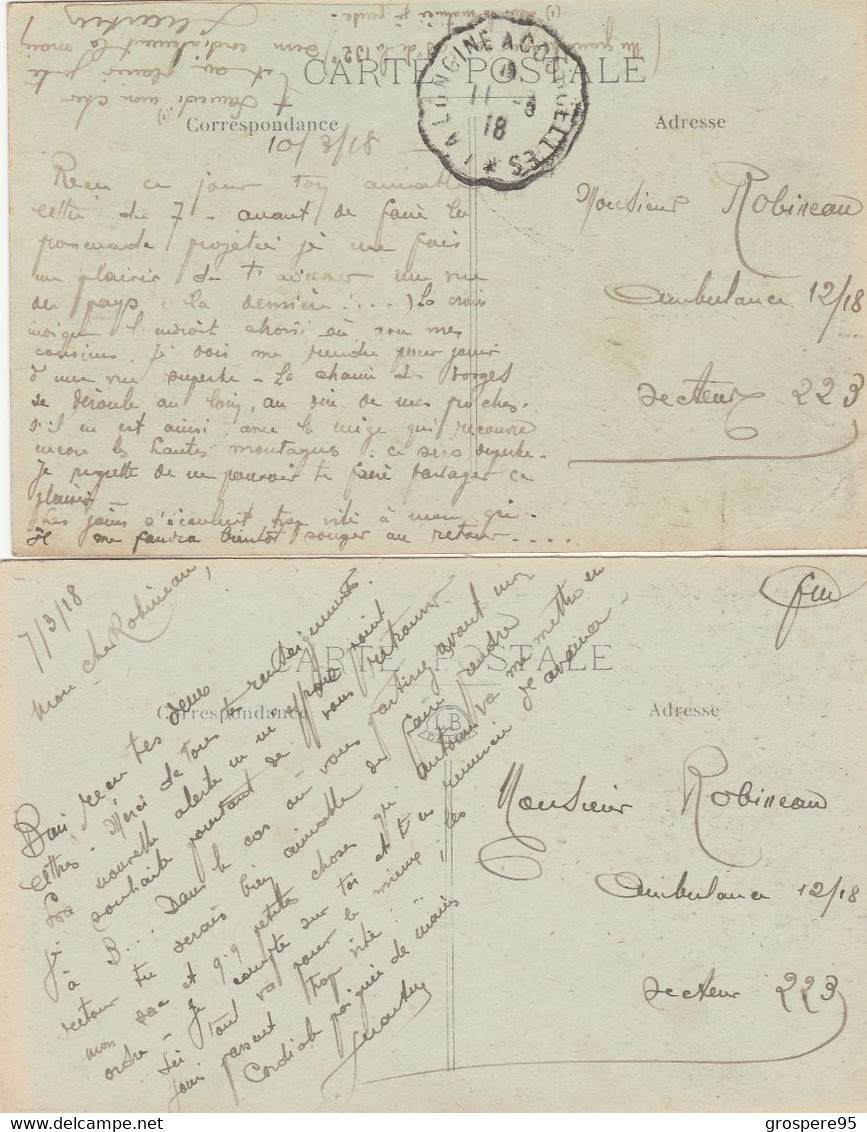 CARTE POSTALE
Correspondance
Adresse
LA LONGINE A CORRAVILLERS
11 - 3
18
t Samedi mon cher
et au plaisir
cordialement la main
10/3/18
Reçu ce jour ton aimable
lettre du 7 - avant de faire la
promenade projetée je me fais
un plaisir de t'adresser une vue
du pays (la dernière !...) La croix
indique l'endroit choisi où son mes
cousins. Je dois me rendre pour jouir
d'une vue superbe - La chaîne des Vosges
se déroule au loin, au dire de mes proches.
S'il en est ainsi avec la neige qui recouvre
encore les hautes montagnes : ce sera superbe -
Je regrette de ne pouvoir te faire partager ce
plaisir
Les jours s'écoulent trop vite à mon gré -
Il me faudra bientôt songer au retour .....
Monsieur Robineau
Ambulance 12/18
Secteur 223
CARTE POSTALE
Correspondance
Adresse
LB
fin
7/3/18
Mon cher Robineau,
Bien reçu tes deux
lettres - Merci de tous tes renseignements.
La nouvelle alerte ne m'effraie point
je souhaite pourtant de vous retrouver
à B... Dans le cas où vous partiriez avant mon
retour tu serais bien aimable de faire prendre
mon sac et q.q petites choses qu'Antoine va me mettre en
ordre - Je compte sur toi et t'en remercie d'avance -
Ici tout va pour le mieux ; les
jours passent trop vite !
Cordiale poignée de mains
Monsieur Robineau
Ambulance 12/18
Secteur 223
grospere95